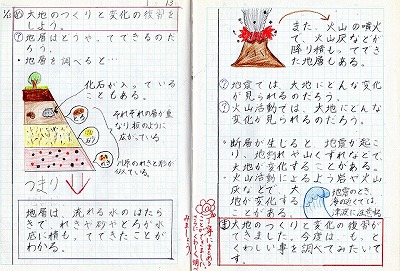 1/13
め 大地のつくりと変化の復習を
しよう。
？地層はどうやってできるのだ
ろう。
・地層を調べると…
化石が入っている
こともある。
それぞれの層が重
なり板のように
広がっている
川原のれきと形が
似ている。
つまり
地層は、流れる水のはたら
きで、れきや砂やどろが水
底に積もってできたことが
わかる。
また、火山の噴火
で、火山灰などが
降り積もってでき
た地層もある。
？地震では、大地にどんな変化
が見られるのだろう。
？火山活動では、大地にどんな
変化が見られるのだろう。
・断層が生じると、地震が起こ
り、地割れや山くずれなどで、
大地が変化することがある。
火山活動によるよう岩や火山
灰などで、大
地が変化する
ことがある。
地震のとき、
海の近くでは、
津波に注意
大地のつくりと変化の復習が
できました。今度は、もっと
くわしい事を調べてみたいで
す。